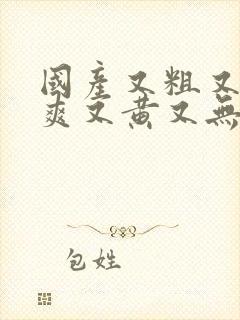 國產又粗又
爽又黃又無
包姓